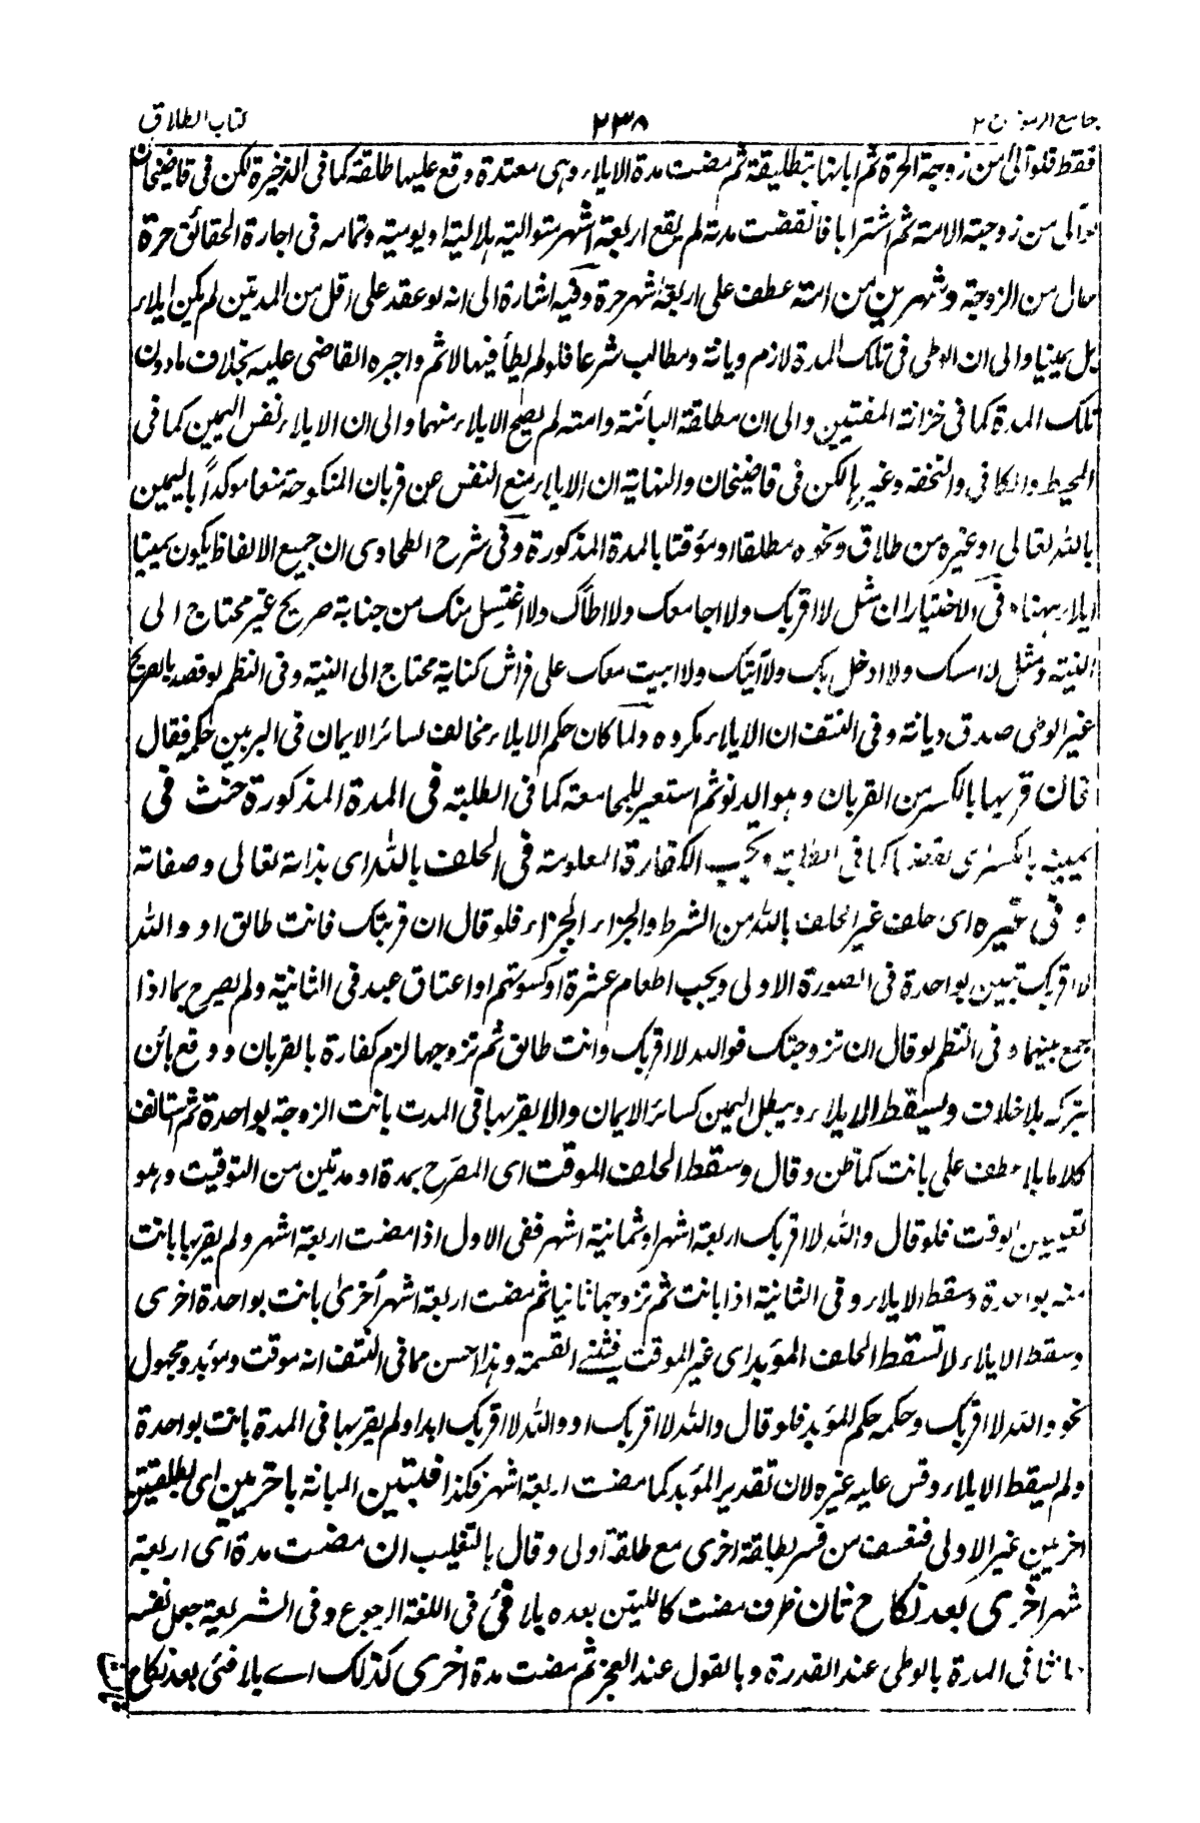 جامع الرموز ج ٢ ٢٣٨ كتاب الطلاق
فقط فلو آلى من زوجة الحرة ثم ابانها بتطليقة ثم مضت مدة الايلاء وهى معتدة وقع عليها طلقة كما فى الذخيرة لكن فى قاضيخان
لو آلى من زوجته الامة ثم اشتراها فانقضت مدته لم يقع اربعة اشهر متوالية هلالية او يومية وتمامه فى اجارة الحقائق حرة
حال من الزوجة وشهرين من امة عطف على اربعة اشهر حرة وفيه اشارة الى انه لو عقد على اقل من المدتين لم يكن ايلاء
بل يمينا والى ان الوطى فى تلك المدة لازم ديانة ومطالب شرعا فلو لم يطأ فيها لاثم واجبره القاضى عليه بخلاف مادون
تلك المدة كما فى خزانة المفتيين والى ان مطلقة البائنة وامته لم يصح الايلاء منهما والى ان الايلاء نفس اليمين كما فى
المحيط والكافى والتحفة وغيرها لكن فى قاضيخان والنهاية ان الايلاء منع النفس عن قربان المنكوحة منعا موكدا باليمين
بالله تعالى او غيره من طلاق ونحوه مطلقا او مؤقتا بالمدة المذكورة وفى شرح الطحاوى ان جميع الالفاظ يكون يمينا
ايلاء بهنا وفى الاختيار ان مثل لا اقربك ولا اجامعك ولا اطأك ولا اغتسل منك من جنابة صريح غير محتاج الى
النية ومثل لا امسك ولا ادخل بك ولا آتيك ولا ابيت معك على فراش كناية محتاج الى النية وفى النظم لو قصد بالصريح
غير الوطى صدق ديانة وفى النتف ان الايلاء مكروه ولما كان حكم الايلاء مخالف لسائر الايمان فى البر بين حكمه فقال
فان قربها بالكسر من القربان وهو الدنو ثم استعير للمجامعة كما فى الطلبة فى المدة المذكورة حنث فى
يمينه بالكسر اى نقضها كما فى الطلبة ويجب الكفارة المعلومة فى الحلف بالله اى بذاته تعالى وصفاته
و فى غيره اى حلف غير الحلف بالله من الشرط والجزاء الجزاء فلو قال ان قربتك فانت طالق او والله
لا اقربك تبين بواحدة فى الصورة الاولى ويجب اطعام عشرة او كسوتهم او اعتاق عبد فى الثانية ولم يصرح بما اذا
جمع بينهما وفى النظم لو قال ان تزوجتك فوالله لا اقربك وانت طالق ثم تزوجها لزم كفارة بالقربان ووقع بائن
بتركه بلا خلاف ويسقط الايلاء ويبطل اليمين كسائر الايمان والا يقربها فى المدت بانت الزوجة بواحدة ثم استانف
كلاما بلا عطف على بانت كما ظن وقال وسقط الحلف الموقت اى المصرح بمدة او مدتين من التوقيت وهو
تعيين الوقت فلو قال والله لا اقربك اربعة اشهر او ثمانية اشهر ففى الاول اذا مضت اربعة اشهر ولم يقربها بانت
منه بواحدة وسقط الايلاء وفى الثانية اذا بانت ثم تزوجها ثانيا ثم مضت اربعة اشهر اخرى بانت بواحدة اخرى
وسقط الايلاء لا تسقط الحلف المؤبد اى غير الموقت فثنى القسمة وهذا احسن مما فى النتف انه موقت ومؤبد ومجهول
نحو والله لا اقربك وحكمه حكم المؤبد فلو قال والله لا اقربك او والله لا اقربك ابدا ولم يقربها فى المدة بانت بواحدة
ولم يسقط الايلاء وقس عليه غيره لان تقدير المؤبد كما مضت اربعة اشهر فكذا فتبين المبانة باخريين اى بطلقتين
اخريين غير الاولى فتعسف من فسر بطلقة اخرى مع طلقة اولى وقال بالتغليب ان مضت مدة اى اربعة
اشهر اخرى بعد نكاح ثان ظرف مضت كالليتين بعده بلا فئ فى اللغة الرجوع وفى الشريعة جعل نفسه
حانثا فى المدة بالوطى عند القدرة وبالقول عند العجز ثم مضت مدة اخرى كذلك اے بلا فئى بعد نكاح